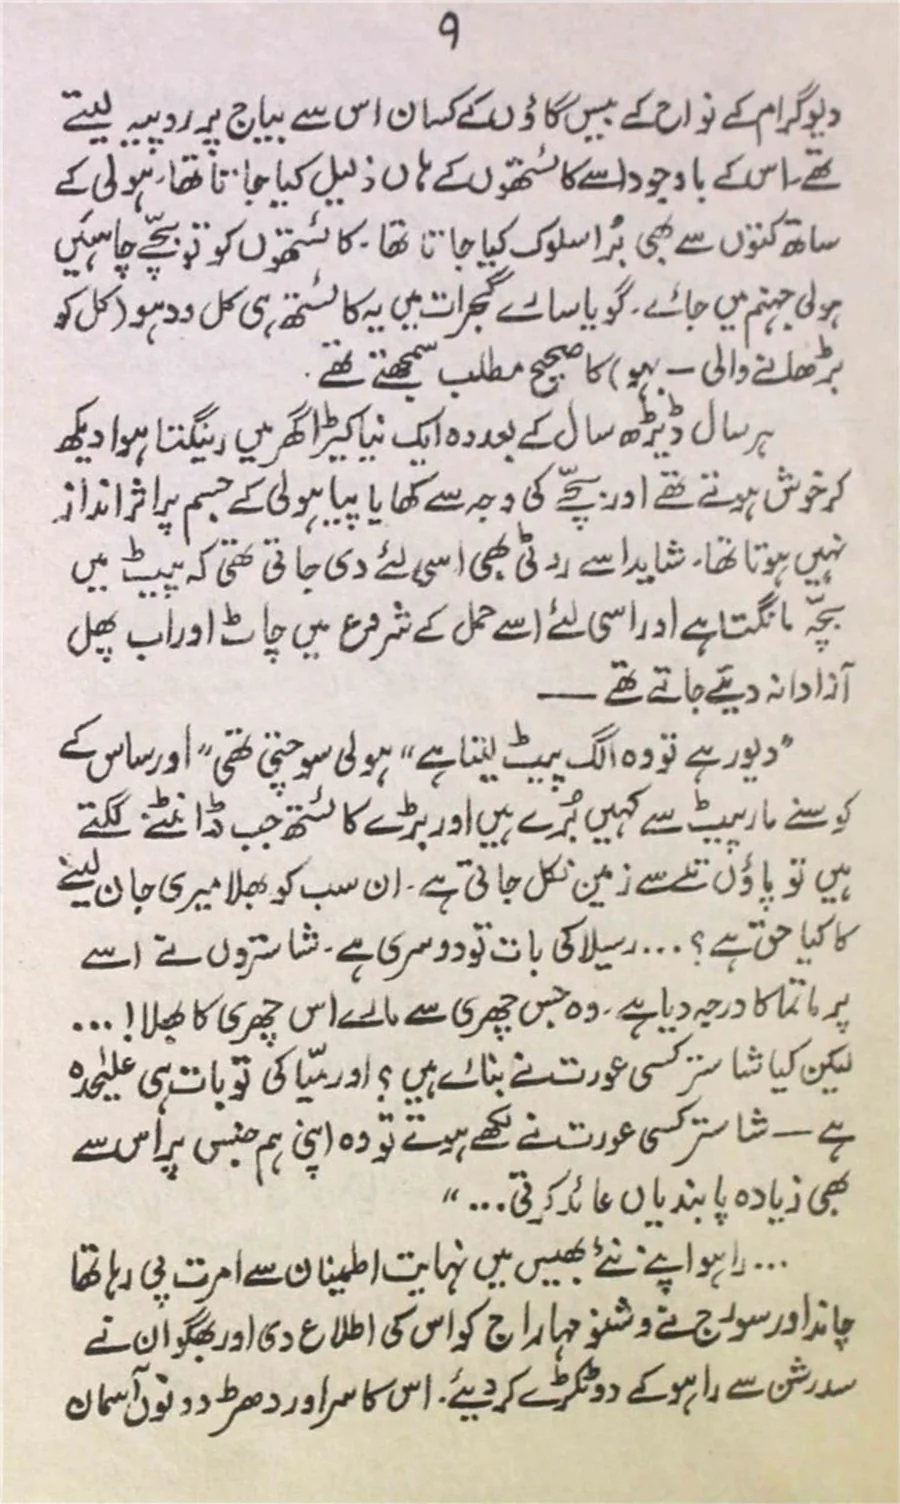 ۹
دیوگرام کے نواح کے بیس گاؤں کے کسان اس سے بیاج پر روپیہ لیتے
تھے۔ اس کے باوجود اسے کائستھوں کے ہاں ذلیل کیا جاتا تھا۔ ہولی کے
ساتھ کتوں سے بھی بُرا سلوک کیا جاتا تھا۔ کائستھوں کو تو بچّے چاہئیں
ہولی جہنم میں جائے۔ گویا سارے گجرات میں یہ کائستھ ہی کل ودہو (کل کو
بڑھانے والی – بہو) کا صحیح مطلب سمجھتے تھے۔
ہر سال ڈیڑھ سال کے بعد وہ ایک نیا کیڑا گھر میں رینگتا ہوا دیکھ
کر خوش ہوتے تھے اور بچّے کی وجہ سے کھایا پیا ہولی کے جسم پر اثر انداز
نہیں ہوتا تھا۔ شاید اسے روٹی بھی اسی لئے دی جاتی تھی کہ پیٹ میں
بچّہ مانگتا ہے اور اسی لئے اسے حمل کے شروع میں چاٹ اور اب پھل
آزادانہ دیئے جاتے تھے —
”دیور ہے تو وہ الگ پیٹ لیتا ہے“ ہولی سوچتی تھی ”اور ساس کے
کوسنے مار پیٹ سے کہیں بُرے ہیں اور بڑے کائستھ جب ڈانٹنے لگتے
ہیں تو پاؤں تلے سے زمین نکل جاتی ہے۔ ان سب کو بھلا میری جان لینے
کا کیا حق ہے؟ ... رسیلا کی بات تو دوسری ہے۔ شاستروں نے اسے
پرماتما کا درجہ دیا ہے۔ وہ جس چھری سے مارے اس چھری کا بھلا! ...
لیکن کیا شاستر کسی عورت نے بنائے ہیں؟ اور میّا کی تو بات ہی علیٰحدہ
ہے — شاستر کسی عورت نے لکھے ہوتے تو وہ اپنی ہم جنس پر اس سے
بھی زیادہ پابندیاں عائد کرتی...“
... راہو اپنے نئے بھیس میں نہایت اطمینان سے امرت پی رہا تھا
چاند اور سورج نے وشنو مہاراج کو اس کی اطلاع دی اور بھگوان نے
سدرشن سے راہو کے دو ٹکڑے کر دیئے۔ اس کا سر اور دھڑ دونوں آسمان